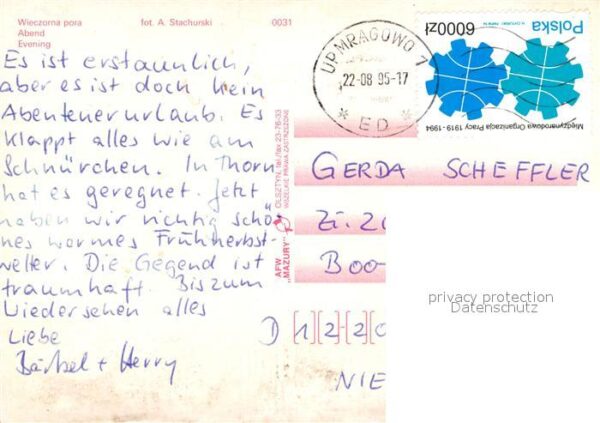 Wieczorna pora
Abend
Evening
fot. A. Stachurski
0031
Es ist erstaunlich,
aber es ist doch kein
Abenteuerurlaub. Es
klappt alles wie am
Schnürchen. In Thorn
hat es geregnet. Jetzt
haben wir richtig schö-
nes warmes Frühherbst-
wetter. Die Gegend ist
traumhaft. Bis zum
Wiedersehen alles
Liebe
Bärbel + Herry
AFW
"MAZURY"
OLSZTYN, tel./fax 23-76-33
WSZELKIE PRAWA ZASTRZEŻONE
UP. MRĄGOWO 1
22-08 95-17
* E D *
Polska
6000zł
Międzynarodowa Organizacja Pracy 1919-1994
GERDA SCHEFFLER
Boo
privacy protection
Datenschutz
D [1][2]-[2][0
NIE